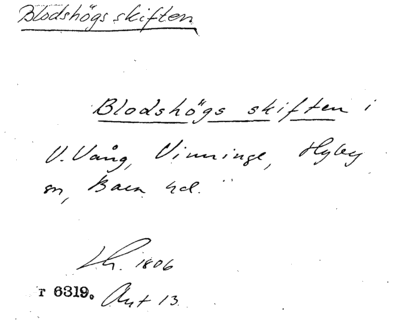 Blodshögs skiften
Blodshögs skiften i
V. Vång, Vinninge, Hyby
sn, Bara hd."
Lh. 1806
r 6319. Akt 13